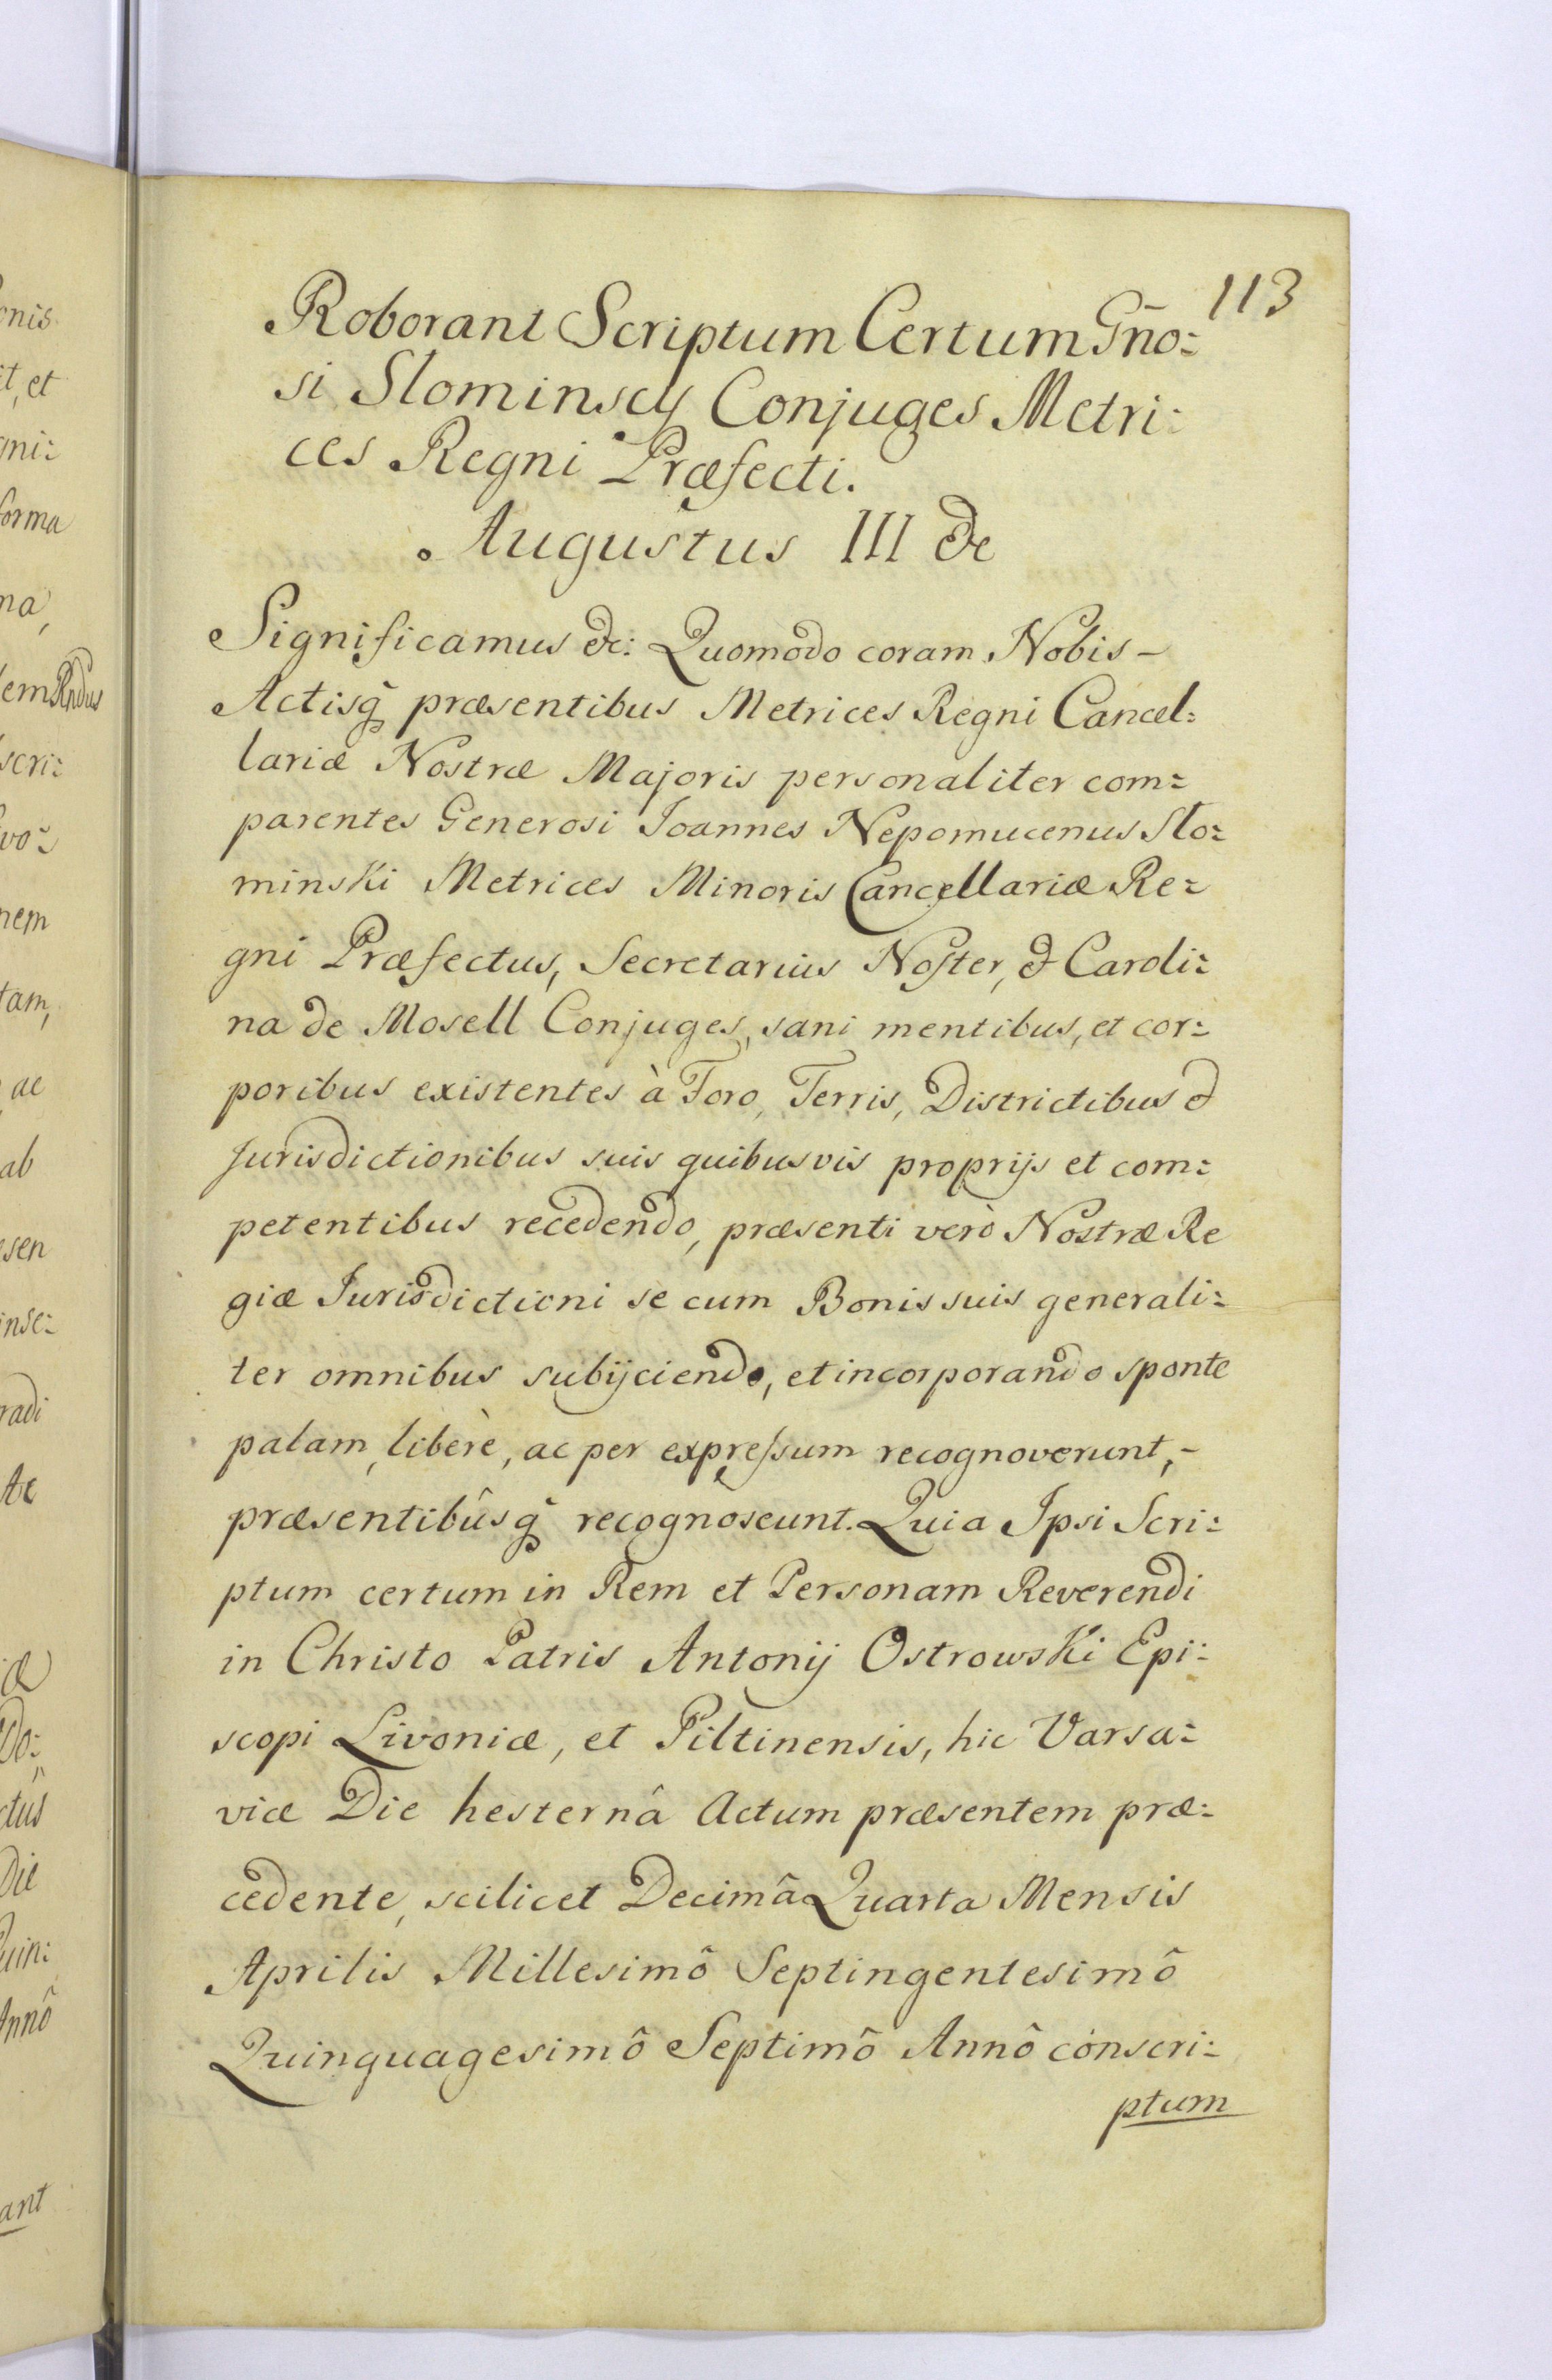 113
Roborant Scriptum Certum Gño:
si Slominscy Conjuges Metri:
ces Regni Præfecti.
Augustus III &c
Significamus &c: Quomodo coram Nobis –
Actisq̃ præsentibus Metrices Regni Cancel:
lariæ Nostræ Majoris personaliter com:
parentes Generosi Joannes Nepomucenus Slo:
minski Metrices Minoris Cancellariæ Re:
gni Præfectus, Secretarius Noster, & Caroli:
na de Mosell Conjuges, sani mentibus, et cor:
poribus existentes à Foro, Terris, Districtibus &
Jurisdictionibus suis quibusvis proprijs et com:
petentibus recedendo, præsenti verò Nostræ Re
giæ Jurisdictioni se cum Bonis suis generali:
ter omnibus subijciendo, et incorporando sponte
palam, liberè, ac per expressum recognoverunt, –
præsentibûsq̃ recognoscunt. Quia Ipsi Scri:
ptum certum in Rem et Personam Reverendi
in Christo Patris Antonij Ostrowski Epi:
scopi Livoniæ, et Piltinensis, hic Varsa:
viæ Die hesternâ Actum præsentem præ:
cedente, scilicet Decimâ Quarta Mensis
Aprilis Millesimô Septingentesimô
Quinquagesimô Septimô Annô conscri:
ptum